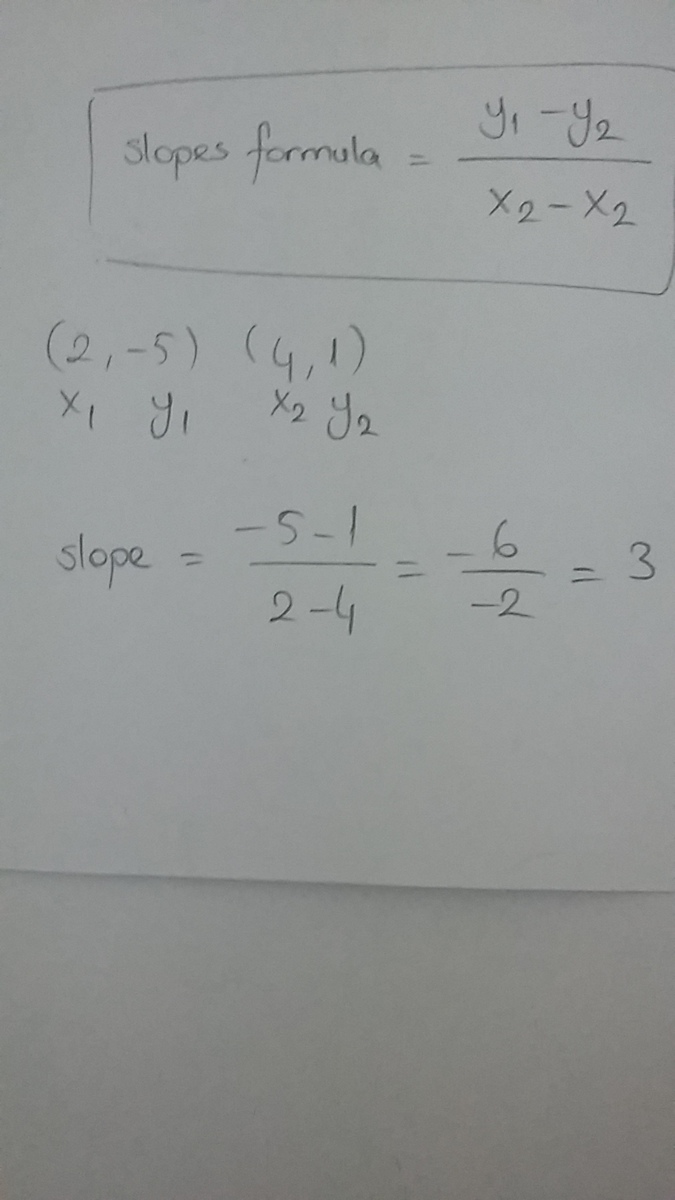 slopes formula = y₁ - y₂ / x₂ - x₂
(2, -5) (4, 1)
x₁ y₁ x₂ y₂
slope = -5 - 1 / 2 - 4 = -6 / -2 = 3